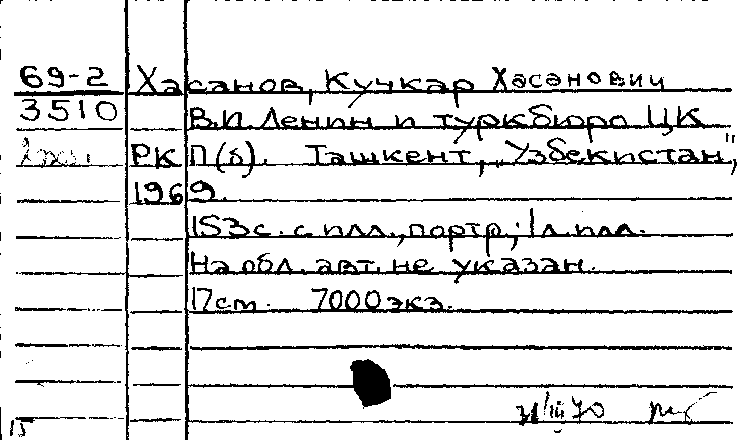 69-2 Хасанов, Кучкар Хасанович
3510 В.И. Ленин и туркбюро ЦК
РКП(б). Ташкент, „Узбекистан",
1969.
153с. с илл., портр.; 1л. илл.
На обл. авт. не указан.
17см. 7000экз.
15